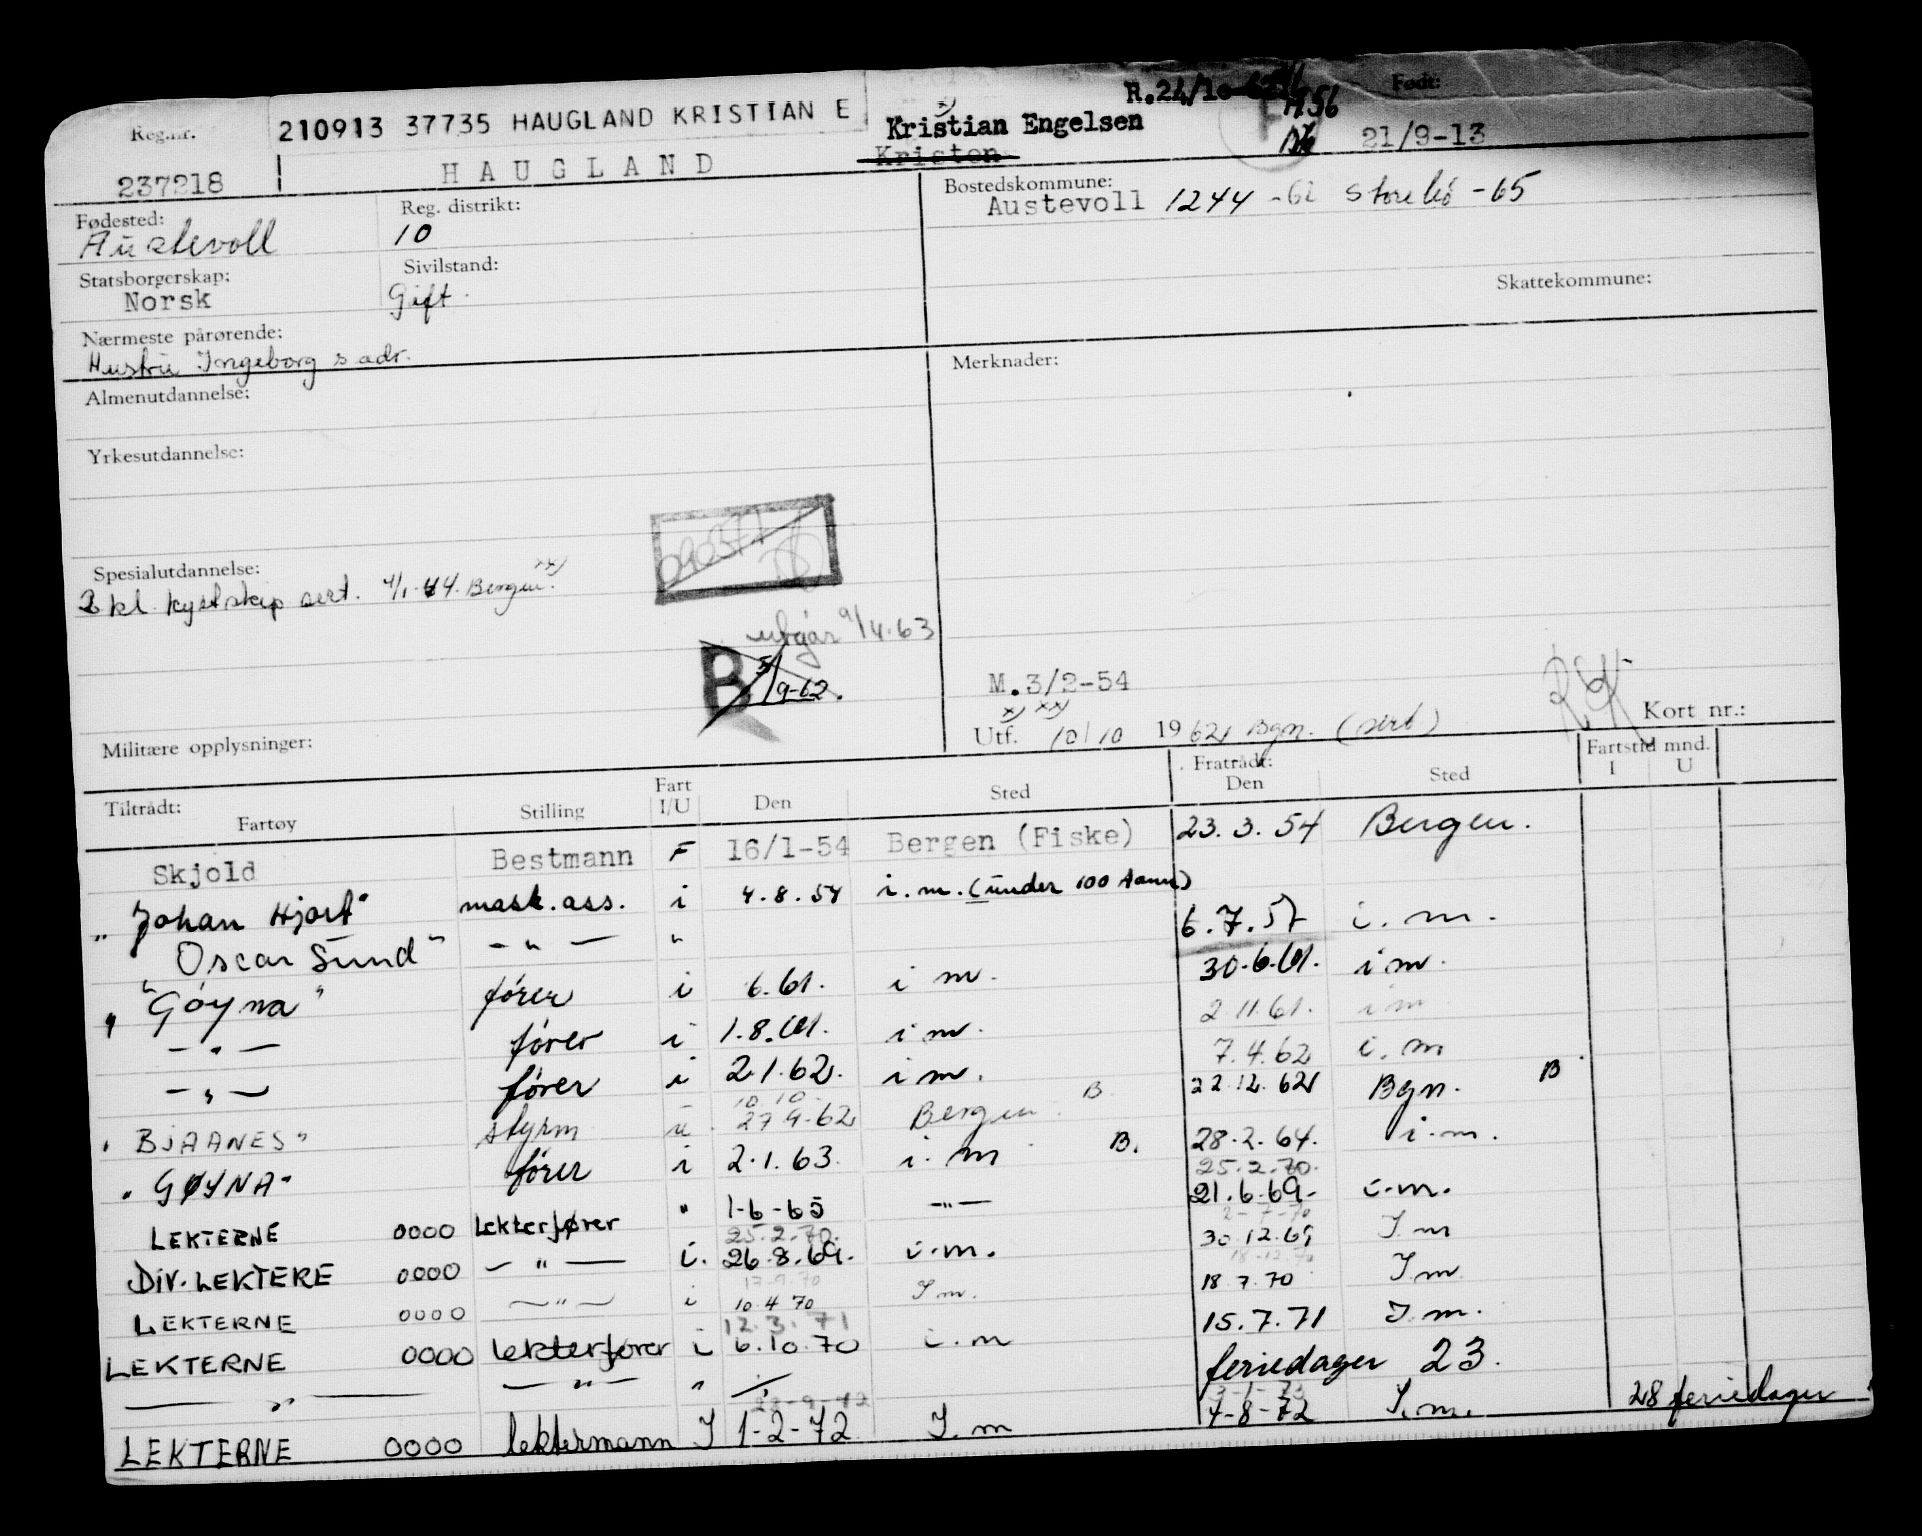 R.24/10-62 1956
Reg.nr. 210913 37735 HAUGLAND KRISTIAN E Kristian Engelsen Født:
237218 HAUGLAND Kristen 21/9-13
Fødested: Reg. distrikt: Bostedskommune:
Austevoll 10 Austevoll 1244 -62 Storebø -65
Statsborgerskap: Sivilstand: Skattekommune:
Norsk Gift.
Nærmeste pårørende:
Hustru Ingeborg s adr.
Almenutdannelse: Merknader:
Yrkesutdannelse:
090571
Spesialutdannelse:
2 kl kystskip sert. 4/1-44. Bergen. xx)
utgår 9/4.63
B 5/9-62.
M.3/2-54
x) xx)
Utf. 10/10 1962 Bgn. (sert)
Kort nr.:
Militære opplysninger:
Tiltrådt: Fratrådt: Fartstid mnd.
Fartøy Stilling Fart I/U Den Sted Den Sted I U
Skjold Bestmann F 16/1-54 Bergen (Fiske) 23.3.54 Bergen.
"Johan Hjort" mask.ass. i 4.8.54 i.m. (under 100 tonn)
Oscar Sund" -"- " 6.7.57 i.m.
"Göyna" fører i 6.61. i m. 30.6.61. i m.
-"- fører i 1.8.61. i m. 2.11.61. i m
-"- fører i 2.1.62. i m. 7.4.62 i.m
10.10.
"BJAANES" styrm u 27.9.62 Bergen. B 22.12.62 Bgn. B
"GØYNA" fører i 2.1.63. i.m B. 28.2.64. i.m.
25.2.70.
LEKTERNE 0000 Lekterfører " 1-6-65 -"- 21.6.69. i.m.
25.2.70. 2-7-70
DIV. LEKTERE 0000 -"- i. 26.8.69. i.m. 30.12.69 I.m
17.9.70 18.12.70
LEKTERNE 0000 -"- i 10.4 70 I m. 18.7.70 I.m.
12.3.71
LEKTERNE 0000 lekterfører i 6.10.70 i.m 15.7.71 I.m.
-"- -"- " feriedager 23.
28-9-72 3-1-73
LEKTERNE 0000 lektermann I 1-2-72 I.m 4-8-72 I.m. 28 feriedager